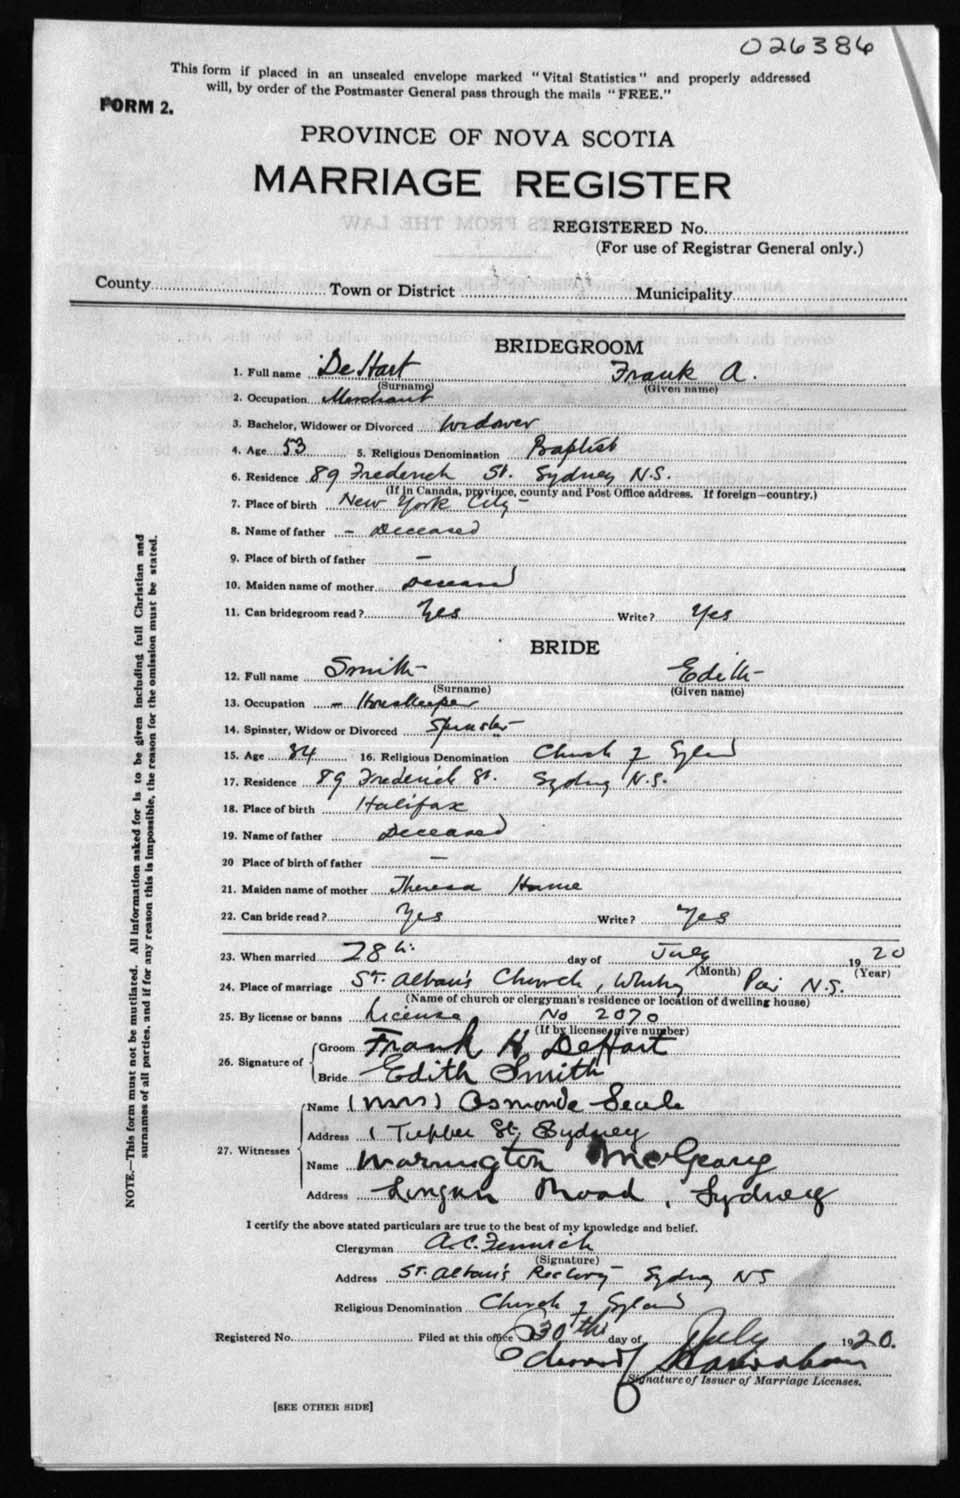 026386
This form if placed in an unsealed envelope marked "Vital Statistics" and properly addressed
will, by order of the Postmaster General pass through the mails "FREE."
FORM 2.
PROVINCE OF NOVA SCOTIA
MARRIAGE REGISTER
REGISTERED No.
(For use of Registrar General only.)
County Town or District Municipality
BRIDEGROOM
1. Full name DeHart Frank A.
(Surname) (Given name)
2. Occupation Merchant
3. Bachelor, Widower or Divorced Widower
4. Age 53 5. Religious Denomination Baptist
6. Residence 89 Frederick St. Sydney N.S.
(If in Canada, province, county and Post Office address. If foreign—country.)
7. Place of birth New York City -
8. Name of father - Deceased
9. Place of birth of father -
10. Maiden name of mother Deceased
11. Can bridegroom read? Yes Write? Yes
BRIDE
12. Full name Smith Edith
(Surname) (Given name)
13. Occupation - Housekeeper
14. Spinster, Widow or Divorced Spinster
15. Age 34 16. Religious Denomination Church of England
17. Residence 89 Frederick St. Sydney N.S.
18. Place of birth Halifax
19. Name of father Deceased
20 Place of birth of father -
21. Maiden name of mother Theresa
22. Can bride read? Yes Write? Yes
23. When married 28th day of July 1920
(Month) (Year)
24. Place of marriage St. Alban's Church, Whitney Pier N.S.
(Name of church or clergyman's residence or location of dwelling house)
25. By license or banns License No 2070
(If by license, give number)
26. Signature of
Groom Frank H DeHart
Bride Edith Smith
27. Witnesses
Name (Mrs) Osmonde
Address 1 Tupper St. Sydney
Name Warrington McGeary
Address Lingan Road, Sydney
I certify the above stated particulars are true to the best of my knowledge and belief.
Clergyman A.C. Fenwick
(Signature)
Address St. Alban's Rectory Sydney NS
Religious Denomination Church of England
Registered No. Filed at this office 30th day of July 1920.
Edward
Signature of Issuer of Marriage Licenses.
[SEE OTHER SIDE]
NOTE.—This form must not be mutilated. All information asked for is to be given including full Christian and
surnames of all parties, and if for any reason this is impossible, the reason for the omission must be stated.